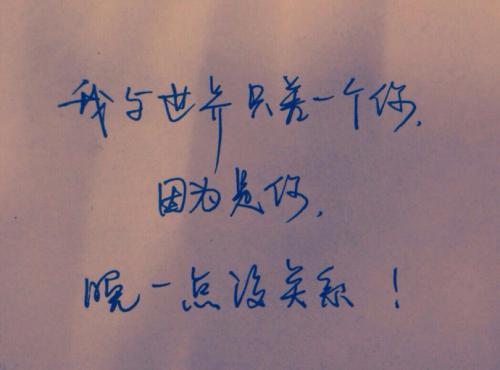 我与世界只差一个你.
因为是你,
晚一点没关系！